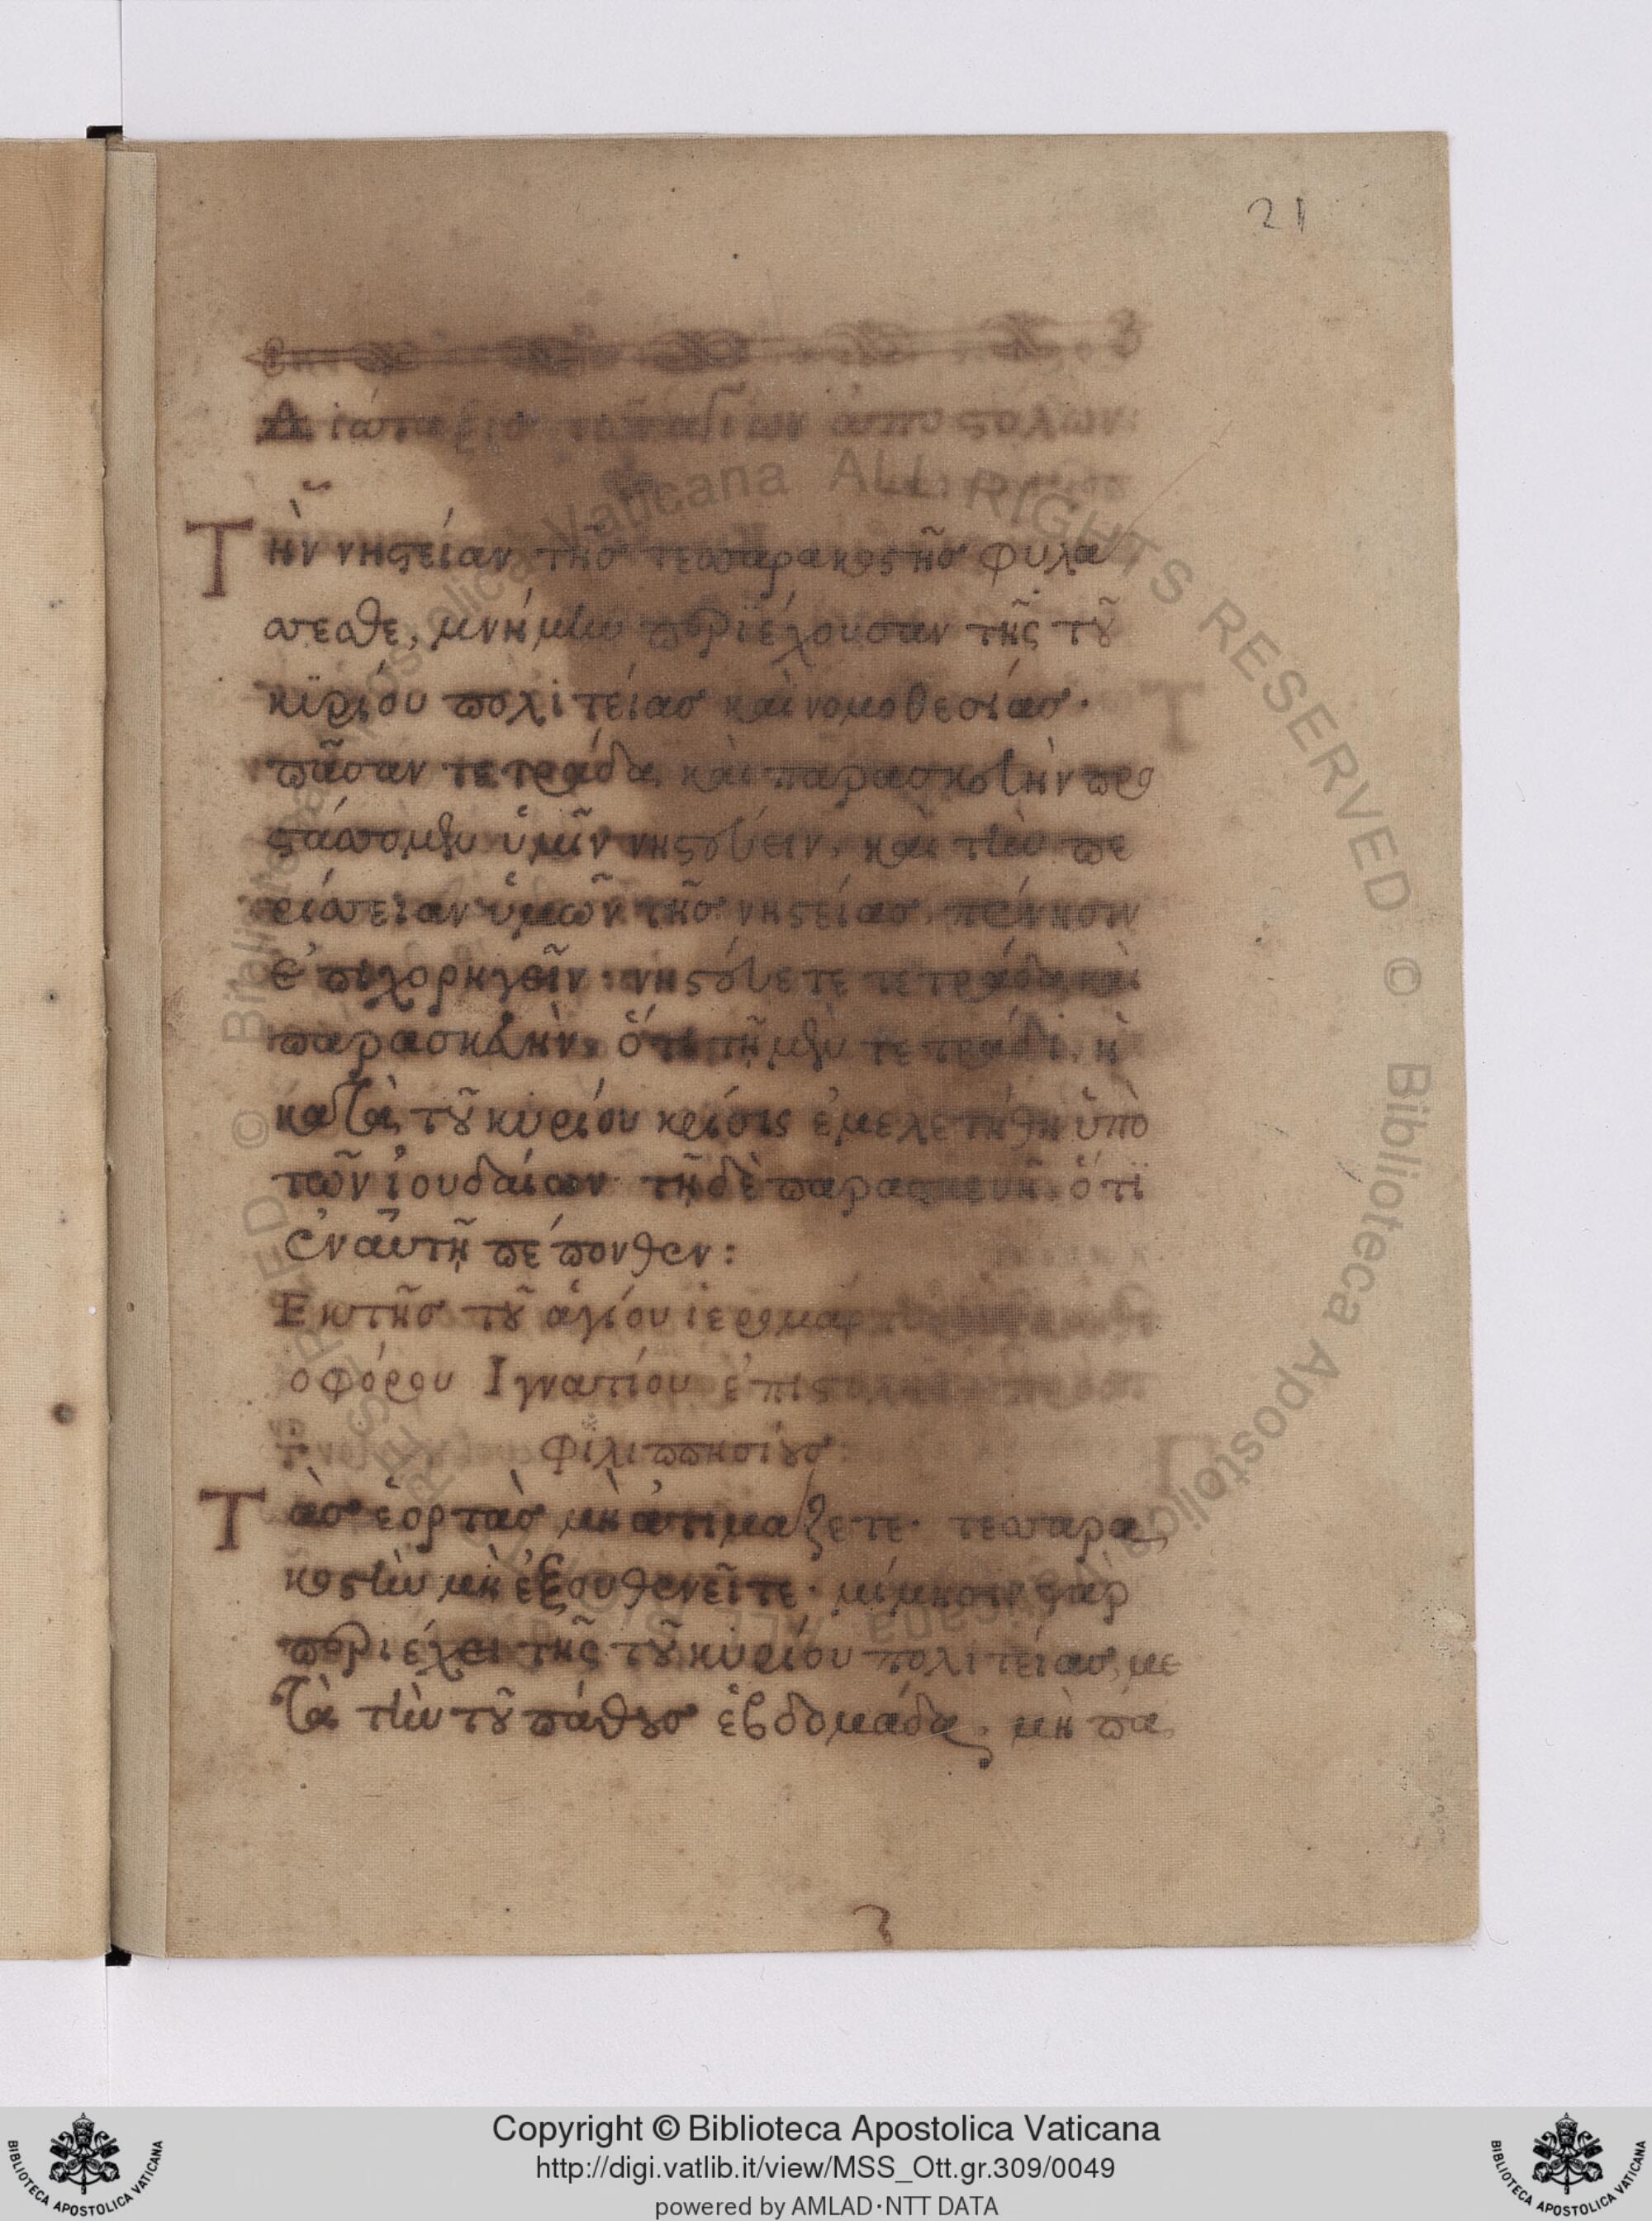 21
Διάταξις τῶν ἁγίων ἀποστόλων:
Τὴν νηστείαν τῆς τεσσαρακοστῆς φυλά
σσεσθε, μνήμην περιέχουσαν τῆς τοῦ
κυρίου πολιτείας καὶ νομοθεσίας.
πᾶσαν τετράδα καὶ παρασκευὴν προ
στάσσομεν ὑμῖν νηστεύειν, καὶ τὴν πε
ρίσσειαν ὑμῶν τῆς νηστείας πένησιν
ἐπιχορηγεῖν: νηστεύετε τετράδα καὶ
παρασκευὴν, ὅτι τῇ μὲν τετράδι, ἡ
κατὰ τοῦ κυρίου κρίσις ἐμελετήθη ὑπὸ
τῶν ἰουδαίων· τῇ δὲ παρασκευῇ, ὅτι
ἐν αὐτῇ πέπονθεν:
Ἐκ τῆς τοῦ ἁγίου ἱερομάρ
οφόρου Ἰγνατίου
Φιλιππησίους:
Τὰς ἑορτὰς μὴ ἀτιμάζετε· τεσσαρα
κοστὴν μὴ ἐξουθενεῖτε· μίμησιν γὰρ
περιέχει τῆς τοῦ κυρίου πολιτείας, με
τὰ τὴν τοῦ πάθους ἑβδομάδα, μὴ πα
Copyright © Biblioteca Apostolica Vaticana
http://digi.vatlib.it/view/MSS_Ott.gr.309/0049
powered by AMLAD·NTT DATA
BIBLIOTECA APOSTOLICA VATICANA
BIBLIOTECA APOSTOLICA VATICANA